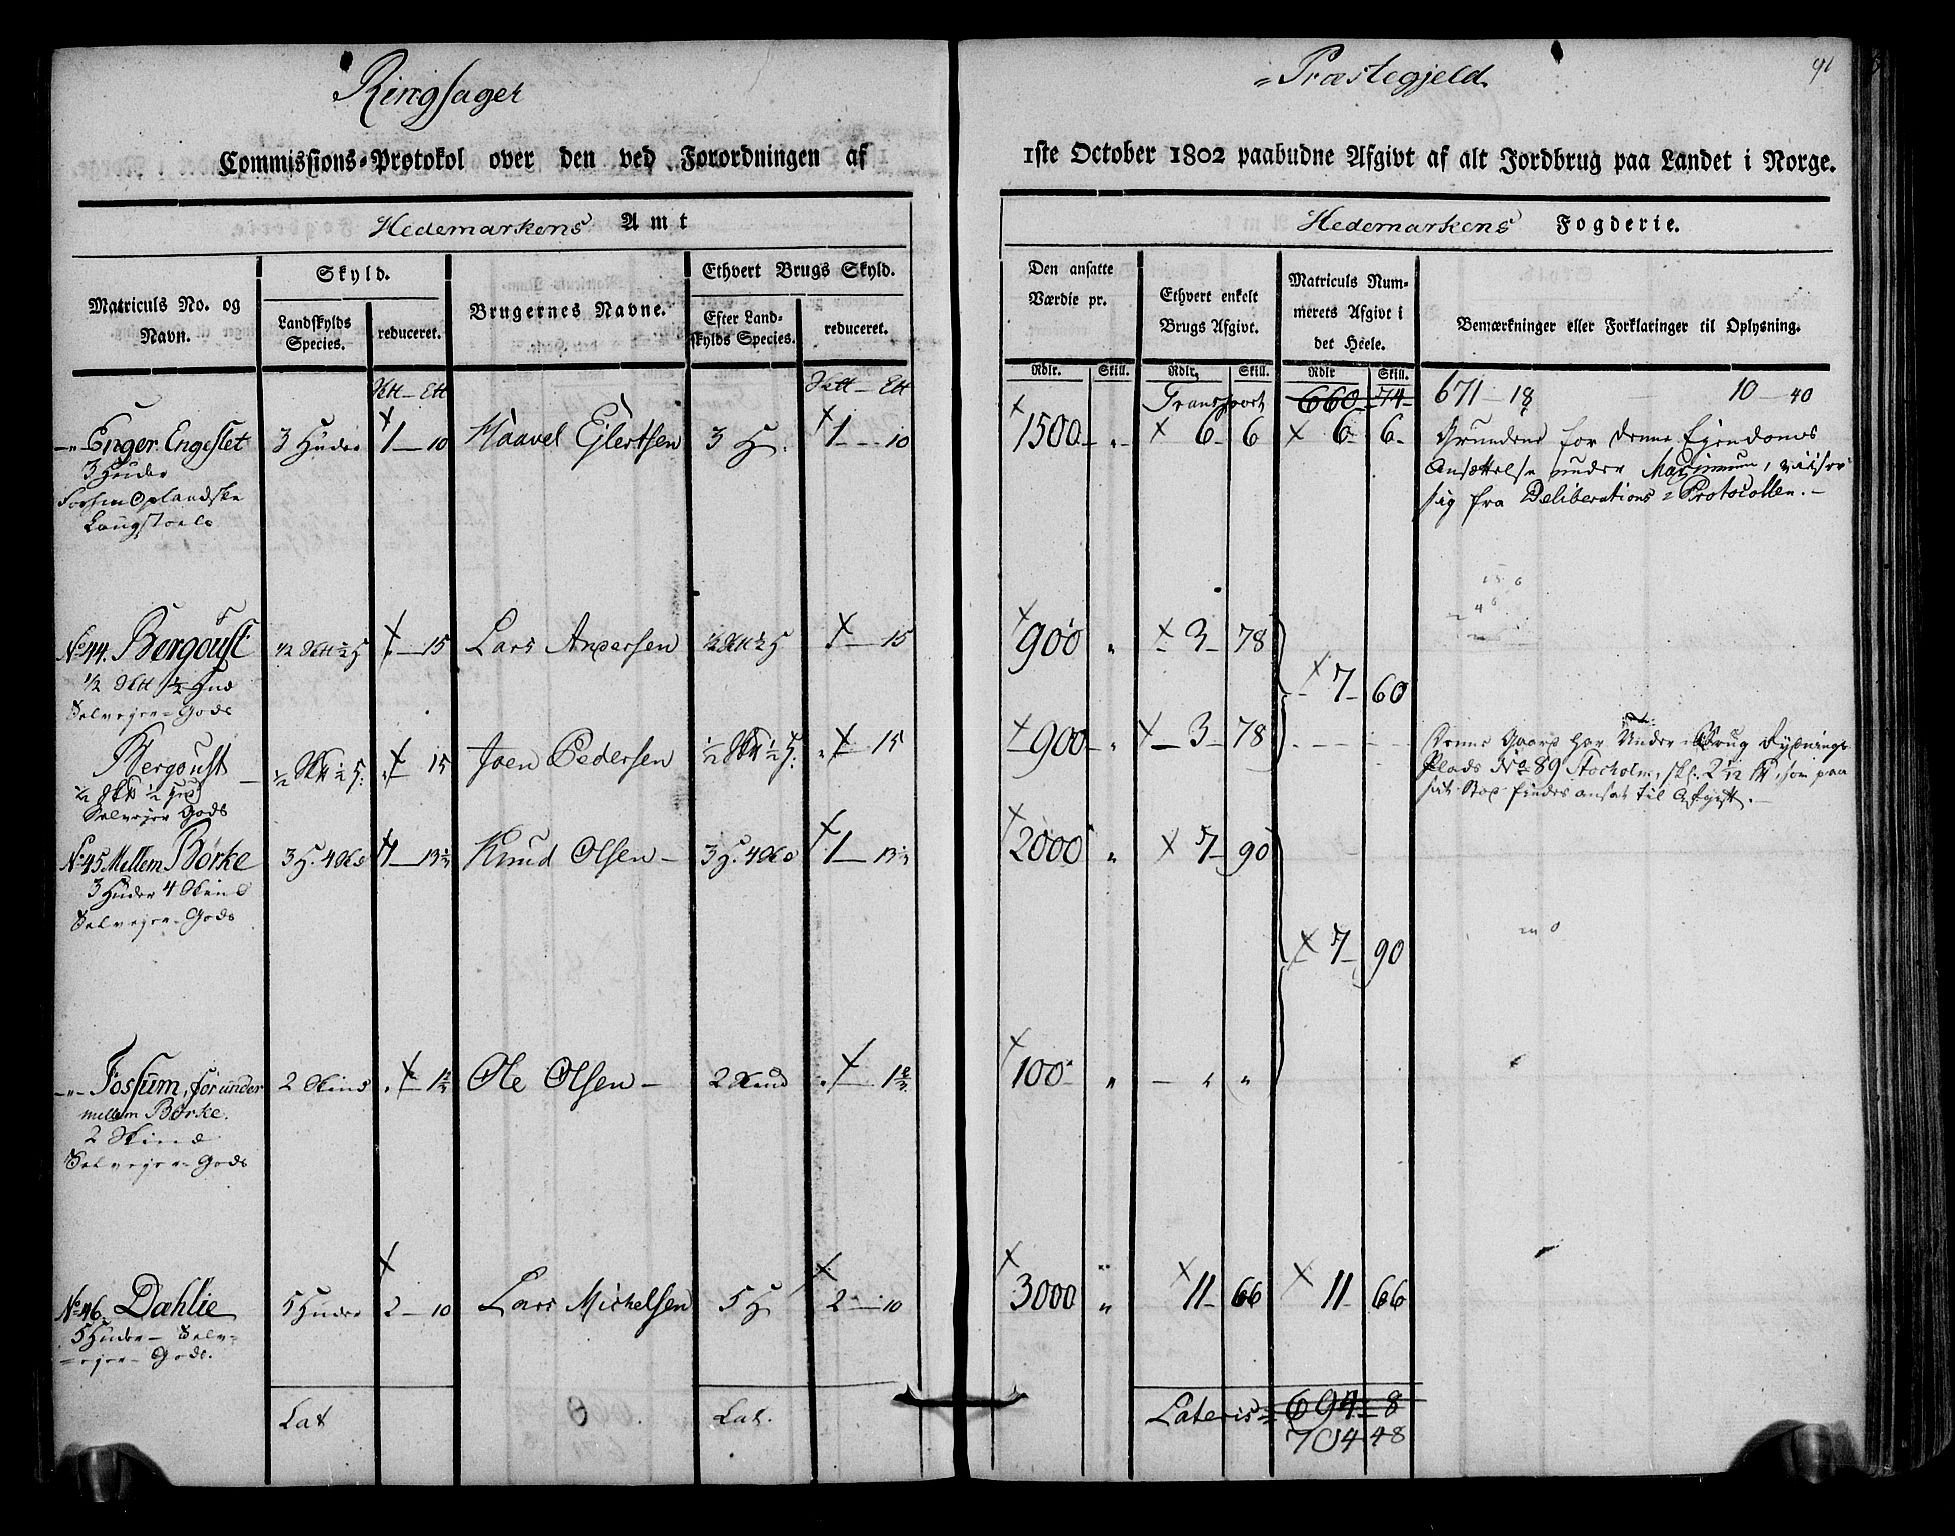 Ringsager
= Præstegjeld.
91
Commissions-Protokol over den ved Forordningen af
1ste October 1802 paabudne Afgivt af alt Jordbrug paa Landet i Norge.
Hedemarkens Amt
Hedemarkens Fogderie.
Matriculs No. og Navn.
Skyld.
Landskylds Species.
reduceret.
Brugernes Navne.
Ethvert Brugs Skyld.
Efter Landskylds Species.
reduceret.
Den ansatte Værdie pr.
Ethvert enkelt Brugs Afgivt.
Matriculs Nummerets Afgivt i det Heele.
Bemærkninger eller Forklaringer til Oplysning.
Rdlr. Skill. Rdlr. Skill. Rdlr Skill.
Transport 660 74 671 - 18 10 - 40
-"- Enger. Engeslet 3 Huder 1 - 10 Haavel Ejlertsen 3 H. 1 - 10 1500 - " 6 6 6 - 6 - Grundene for denne Ejendoms
3 Huder Ansættelse under Maximum, viiser
Oplandske sig fra Deliberations = Protocollen. -
No 44. Bergoust ½ Skt ½ H " - 15 Lars Andersen ½ Skt ½ H " - 15 900 " 3 - 78
½ Skt ½ Hud 7 - 60
Selvejer = Gods
Bergoust ½ Skt ½ H: " - 15 Joen Pedersen ½ Skt ½ H: " - 15 900 - " 3 - 78 Denne Gaard har Under = Brug Rydnings
½ Skt ½ Hud Plads No 89 Stocholm, som paa
Selvejer Gods sit Sted findes ansat til Afgivt. -
No 45 Mellem Børke 3 H. 4 Skd 1 - 13½ Knud Olsen - 3 H. 4 Skd 1 - 13½ 2000 " 7 - 90
3 Huder 4 Skind
Selvejer = Gods
7 - 90
-"- Fossum, for under 2 Skind Ole Olsen - 2 Skind 100 " - " "
mellem Børke.
2 Skind
Selvejer = Gods
No 46. Dahlie 5 Huder 2 - 10 Lars Michelsen 5 H 2 - 10 3000 " 11 - 66 11 66
5 Huder - Selv=
=ejer = Gods.
Lat Lat. Lateris = 694 - 8
704 48